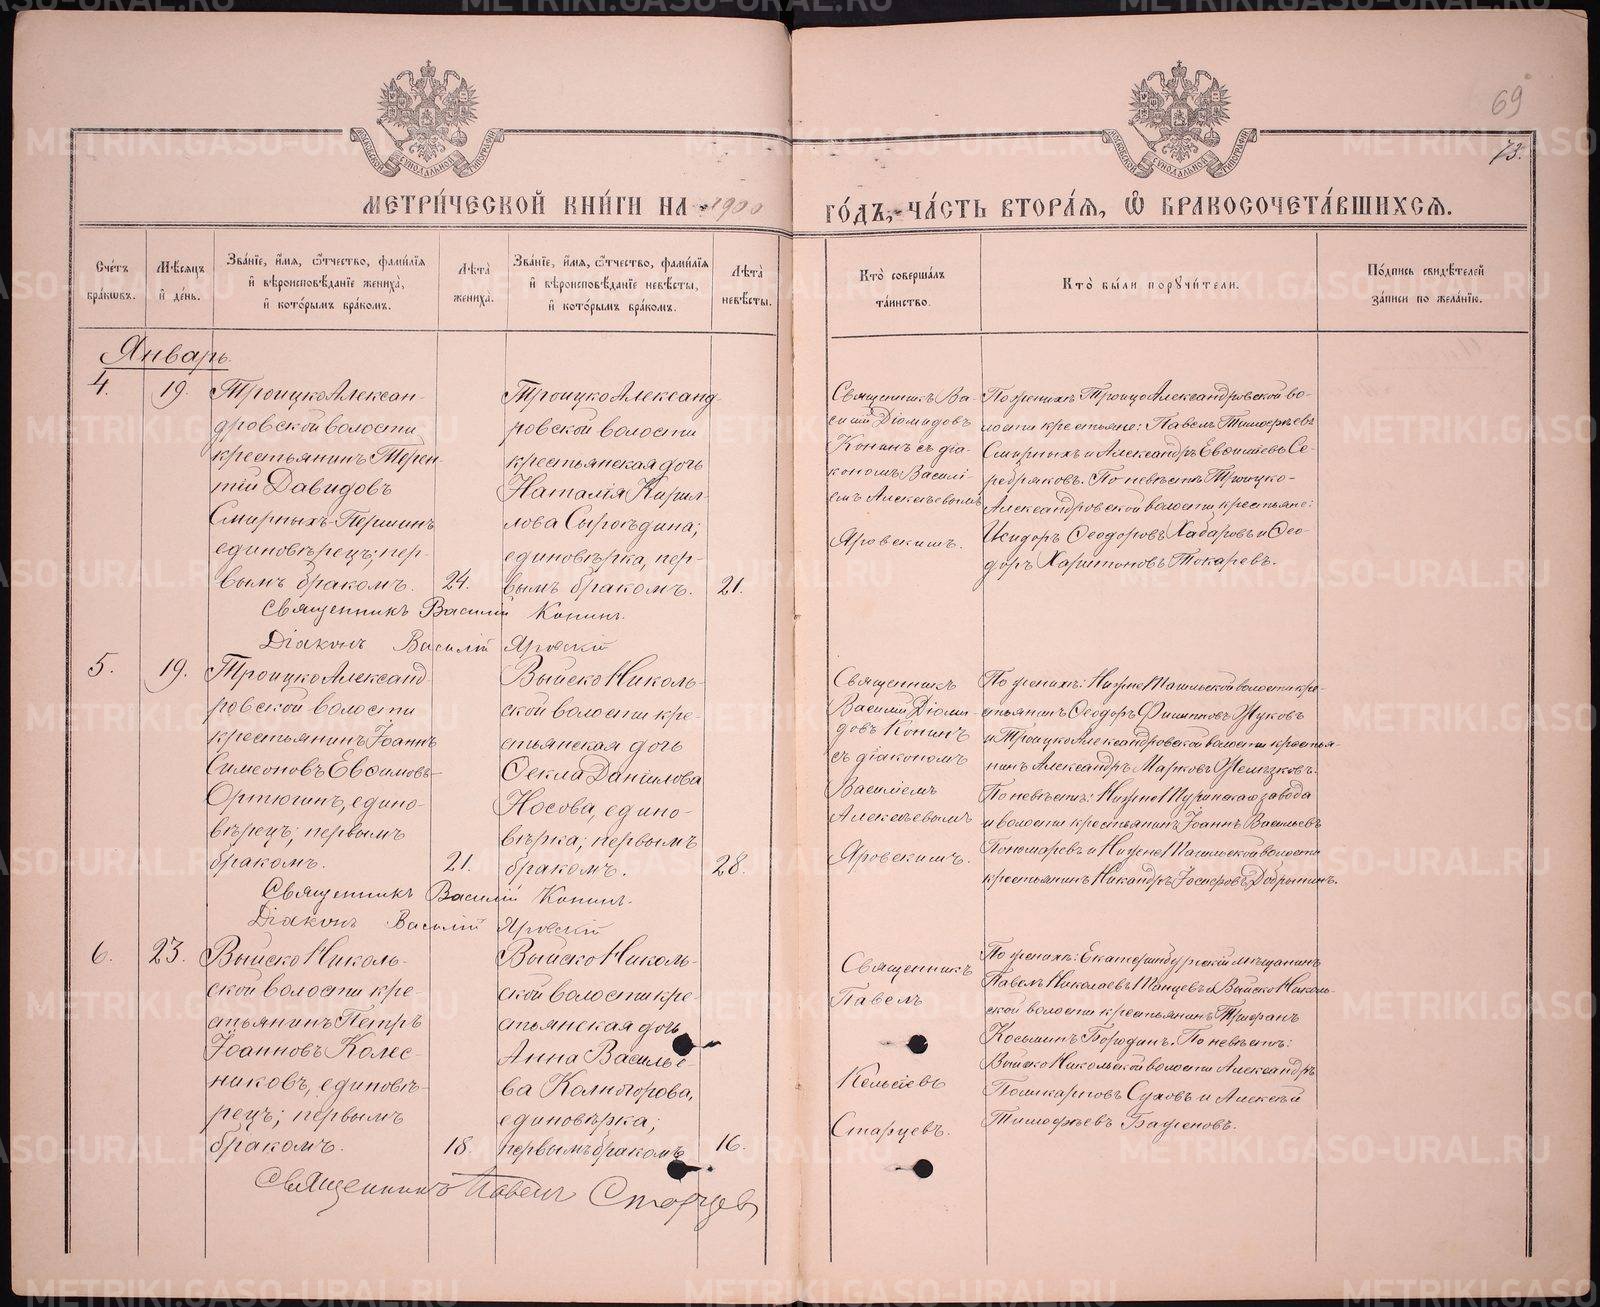 69
73.
МЕТРИ́ЧЕСКОЙ КНИ́ГИ НА 1900 ГО́ДЪ, ЧА́СТЬ ВТОРА́Я, Ѽ БРАКОСОЧЕТА́ВШИХСЯ.
Сче́тъ бра́ковъ.
Мѣ́сяцъ и҆ де́нь.
Зва́нїе, и҆́мя, ѻ҆́тчество, фами́лїя
и҆ вѣроисповѣ́данїе жениха̀,
и҆ кото́рымъ бра́комъ.
Лѣ́та жениха̀.
Зва́нїе, и҆́мя, ѻ҆́тчество, фами́лїя
и҆ вѣроисповѣ́данїе невѣ́сты,
и҆ кото́рымъ бра́комъ.
Лѣ́та невѣ́сты.
Кто̀ соверша́лъ
та́инство.
Кто̀ бы́ли порꙋчи́тели.
По́дпись свидѣ́телей
за́писи по жела́нїю.
Январь.
4.
19.
ТроицкоАлексан-
дровской волости
крестьянинъ Терен-
тій Давидовъ
Смирныхъ-Першинъ
единовѣрецъ; пер-
вымъ бракомъ.
24.
ТроицкоАлександ-
ровской волости
крестьянская дочь
Наталія Кирил-
лова Сыроѣдина;
единовѣрка, пер-
вымъ бракомъ.
21.
Священникъ Ва-
силій Діомидовъ
Конинъ съ діа-
кономъ Василі-
емъ Алексѣевымъ
Яровскимъ.
По женихѣ ТроицоАлександровской во-
лости крестьяне: Павелъ Тимоѳеевъ
Смирныхъ и Александръ Евѳиміевъ Се-
ребряковъ. По невѣстѣ Троицко-
Александровской волости крестьяне:
Исидоръ Ѳеодоровъ Хабаровъ и Ѳео-
доръ Харитоновъ Токаревъ.
Священникъ Василій Конинъ.
Діаконъ Василій Яровскій
5.
19.
ТроицкоАлександ
ровской волости
крестьянинъ Іоаннъ
Симеоновъ Евѳимовъ-
Ортюгинъ, едино-
вѣрецъ; первымъ
бракомъ.
21.
ВыйскоНиколь-
ской волости кре-
стьянская дочь
Ѳекла Даніилова
Носова, едино-
вѣрка; первымъ
бракомъ.
28.
Священникъ
Василій Діоми-
довъ Конинъ
съ діакономъ
Василіемъ
Алексѣевымъ
Яровскимъ.
По женихѣ: НижнеТагильской волости кре-
стьянинъ Ѳеодоръ Филипповъ Жуковъ
и ТроицкоАлександровской волости крестья-
нинъ Александръ Марковъ Желѣзковъ.
По невѣстѣ: НижнеТуринскаго завода
и волости крестьянинъ Іоаннъ Васильевъ
Пономаревъ и НижнеТагильской волости
крестьянинъ Никандръ Іосифовъ Добрынинъ.
Священникъ Василій Конинъ.
Діаконъ Василій Яровскій
6.
23.
ВыйскоНиколь-
ской волости кре-
стьянинъ Петръ
Іоанновъ Колес-
никовъ, единовѣ-
рецъ; первымъ
бракомъ.
18.
ВыйскоНиколь-
ской волости кре-
стьянская дочь
Анна Василье-
ва Колногорова,
единовѣрка;
первымъ бракомъ
16.
Священникъ
Павелъ
Кельсіевъ
Старцевъ.
По женихѣ: Екатеринбургскій мѣщанинъ
Павелъ Николаевъ и ВыйскоНиколь-
ской волости крестьянинъ Трифонъ
Косьминъ Бородинъ. По невѣстѣ:
ВыйскоНикольской волости Александръ
Суховъ и Алексѣй
Тимофѣевъ Баженовъ.
Священникъ Павелъ Старцевъ
METRIKI.GASO-URAL.RU